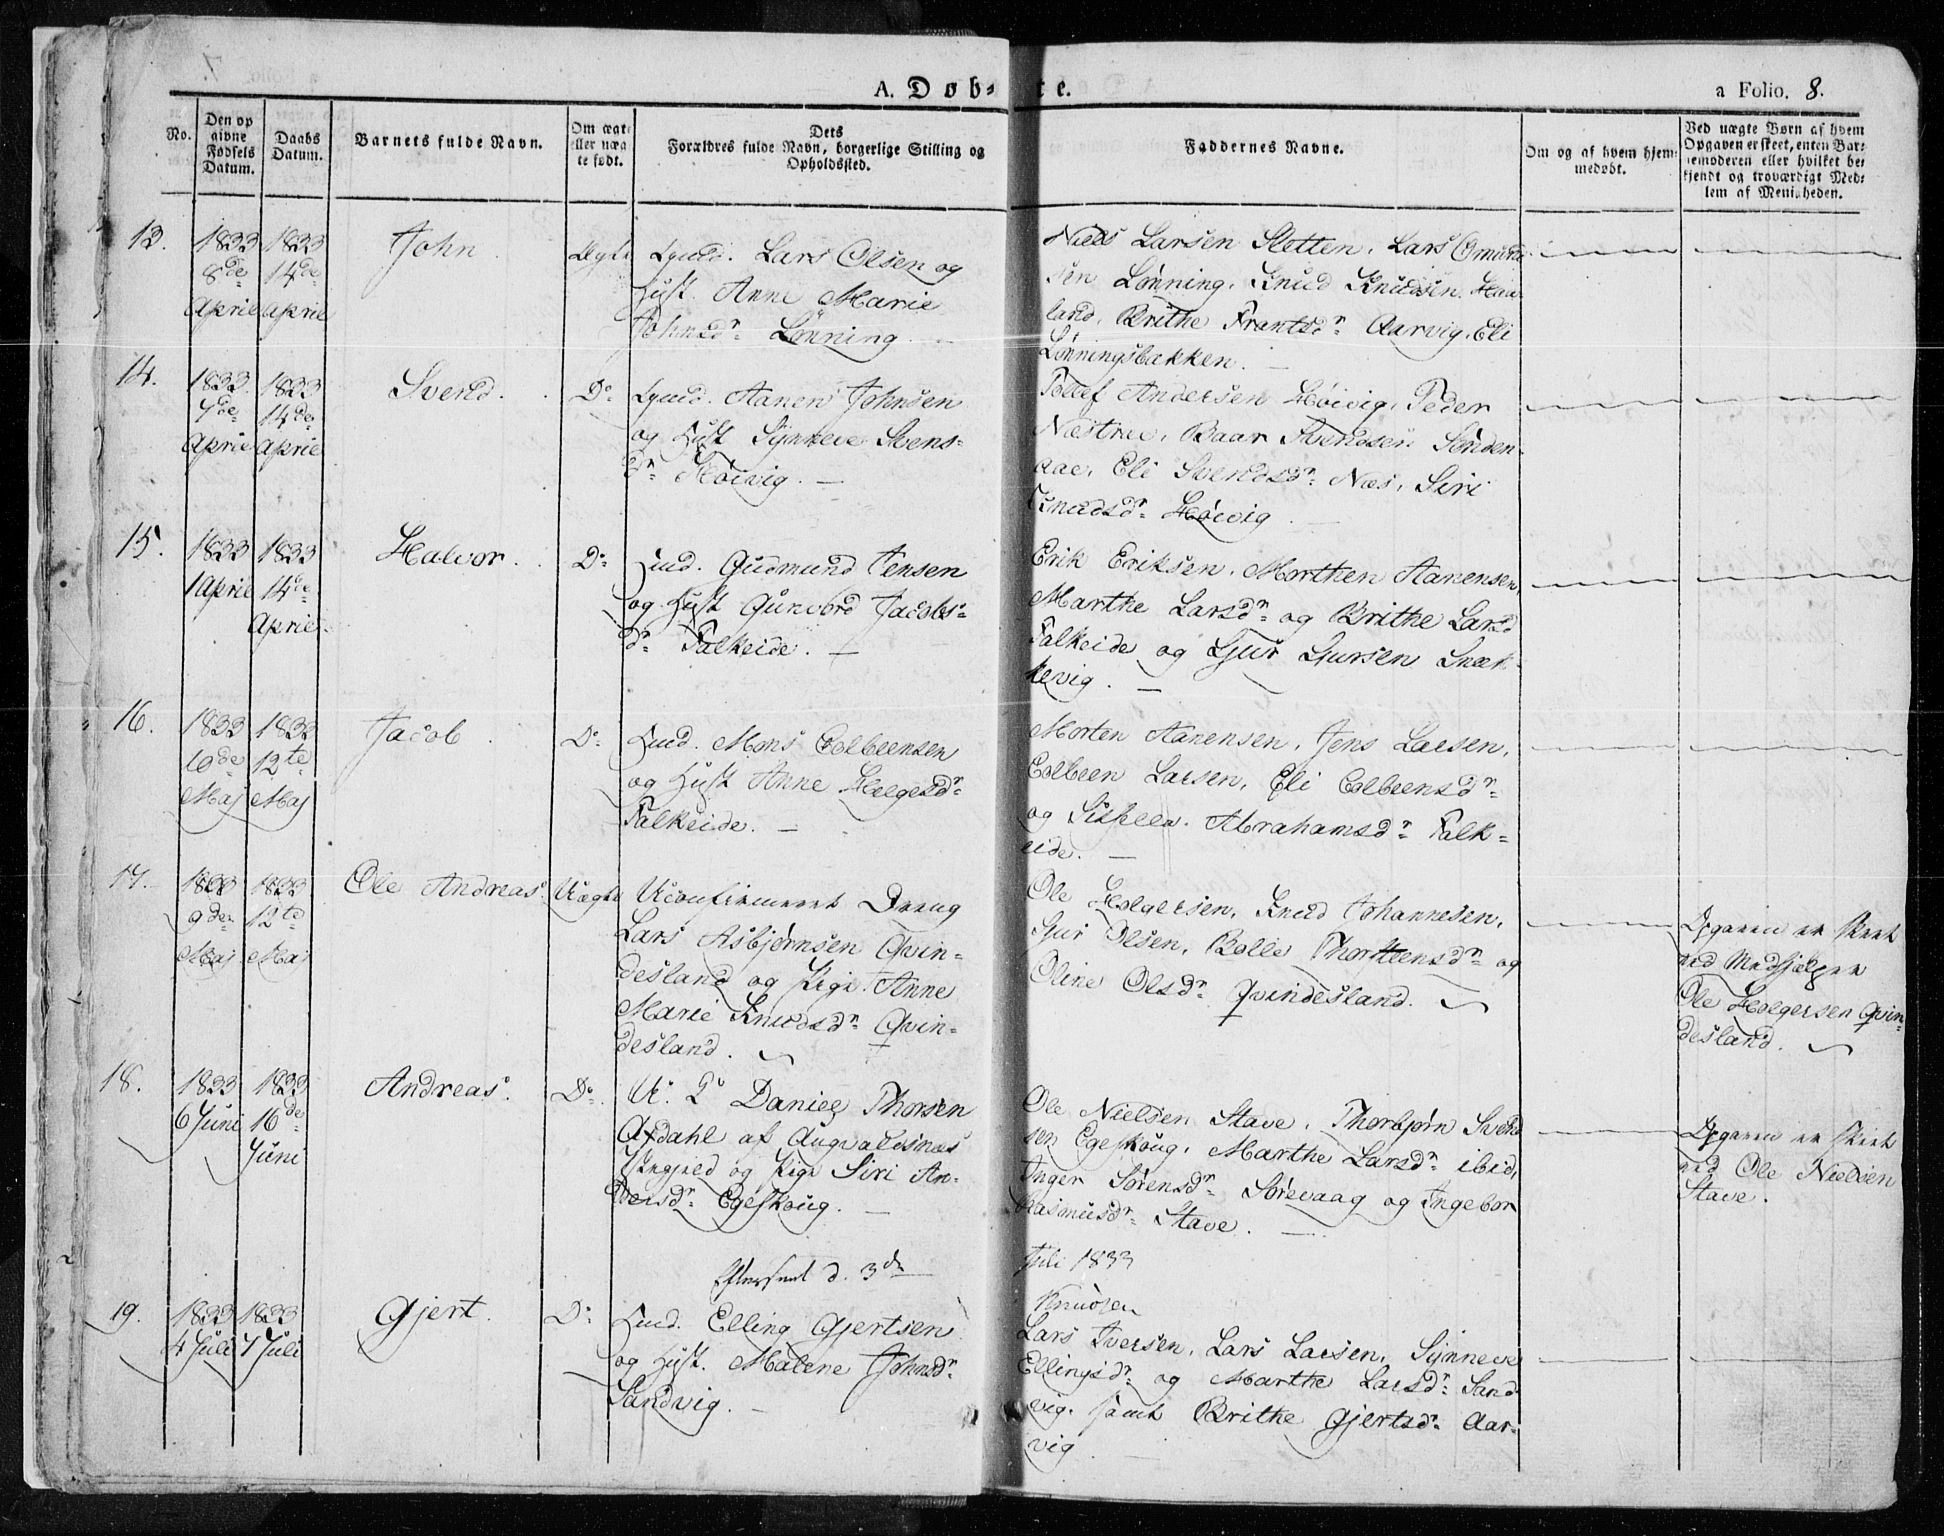 A. Døb-te.
a Folio. 8.
No.
Den op
givne
Fødsels
Datum.
Daabs
Datum.
Barnets fulde Navn.
Om ægte
eller uæg
te født.
Dets
Forældres fulde Navn, borgerlige Stilling og
Opholdssted.
Faddernes Navne.
Om og af hvem hjem-
medøbt.
Ved uægte Børn af hvem
Opgaven er skeet, enten Bar-
nemoderen eller hvilket be-
kjendt og troværdigt Med-
lem af Menigheden.
13.
1833
8de
April
1833
14de
April
John
Ægte
Lars Olsen og
Hust. Anne Marie
Johnsdr Lønning.
Niels Larsen Sletten, Lars Omund
sen Lønning, Knud Knudsen Haa
land, Brithe Frantsdr Aarvig, Eli
Lønningsbækken.
14.
1833
7de
April
1833
14de
April
Svend.
Do
Aanen Johnsen
og Hust Synneve Svens-
dr Høivig.
Tollef Andersen Høivig, Peder
Næstree, Baar Svendsen Sønden-
aae, Eli Svendsdr Næs, Siri
Knudsdr Høivig
15.
1833
1 April
1833
14de
April.
Halvor.
Do
Lmd. Gudmund Jensen
og Hust Gunvord Jacobs-
dr Falkeide.
Erik Eriksen, Morthen Aanensen,
Marthe Larsdr og Brithe Larsd
Falkeide og Sjur Sjursen Snæk-
kevig.
16.
1833
10de
Maj
1833
12te
Maj
Jacob
Do
Lmd. Mons Colbeensen
og Hust Anne Helgesdr
Falkeide.
Morten Aanensen, Jens Larsen,
Colbeen Larsen, Eli Colbeensdr
og Siskela Abrahamsdr Falk-
eide.
17.
1833
9de
Maj
1833
12te
Maj
Ole Andreas.
Uægte
Uconfirmeret Dreng
Lars Asbjørnsen Qvin-
desland og Pige Anne
Marie Knudsdr Qvin-
desland.
Ole Holgersen, Knud Johannesen,
Sjur Olsen, Bolle Thorsteensdr og
Oline Olsdr Qvindesland.
Opgaven er skeet
ved Medhjelper
Ole Holgersen Qvin-
desland.
18.
1833
6 Juni
1833
16de
Juni
Andreas.
Do.
Daniel Thorsen
Aadahl af Augvaldsnæs
Præstegjeld og Pige Siri An-
dersdr Egeskoug.
Ole Nielsen Stave, Thorbjørn Svend
sen Egeskoug, Marthe Larsdr ibid,
Inger Sørensdr Sørevaag og Ingebor
Rasmusdr Stave.
Opgaven er skeet
ved Ole Nielsen
Stave.
Efterseet d. 3de Juli 1833
Knudsen
19.
1833
4 Juli
1833
7 Juli
Gjert.
Do
Lmd. Elling Gjertsen
og Hust. Malene Johnsdr
Sandvig.
Lars Iversen, Lars Larsen, Synneve
Ellingsdr og Marthe Larsdr Sand
vig, samt Brithe Gjertsdr Aar-
vig